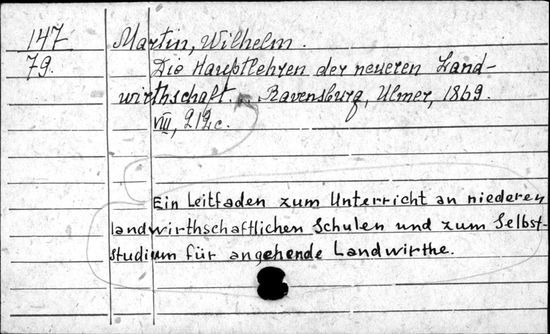 147 Martin, Wilhelm.
79. Die Hauptlehren der neueren Land-
wirthschaft. Ravensburg, Ulmer, 1869.
VIII, 212c.
Ein Leitfaden zum Unterricht an niederen
landwirthschaftlichen Schulen und zum Selbst-
studium für angehende Landwirthe.